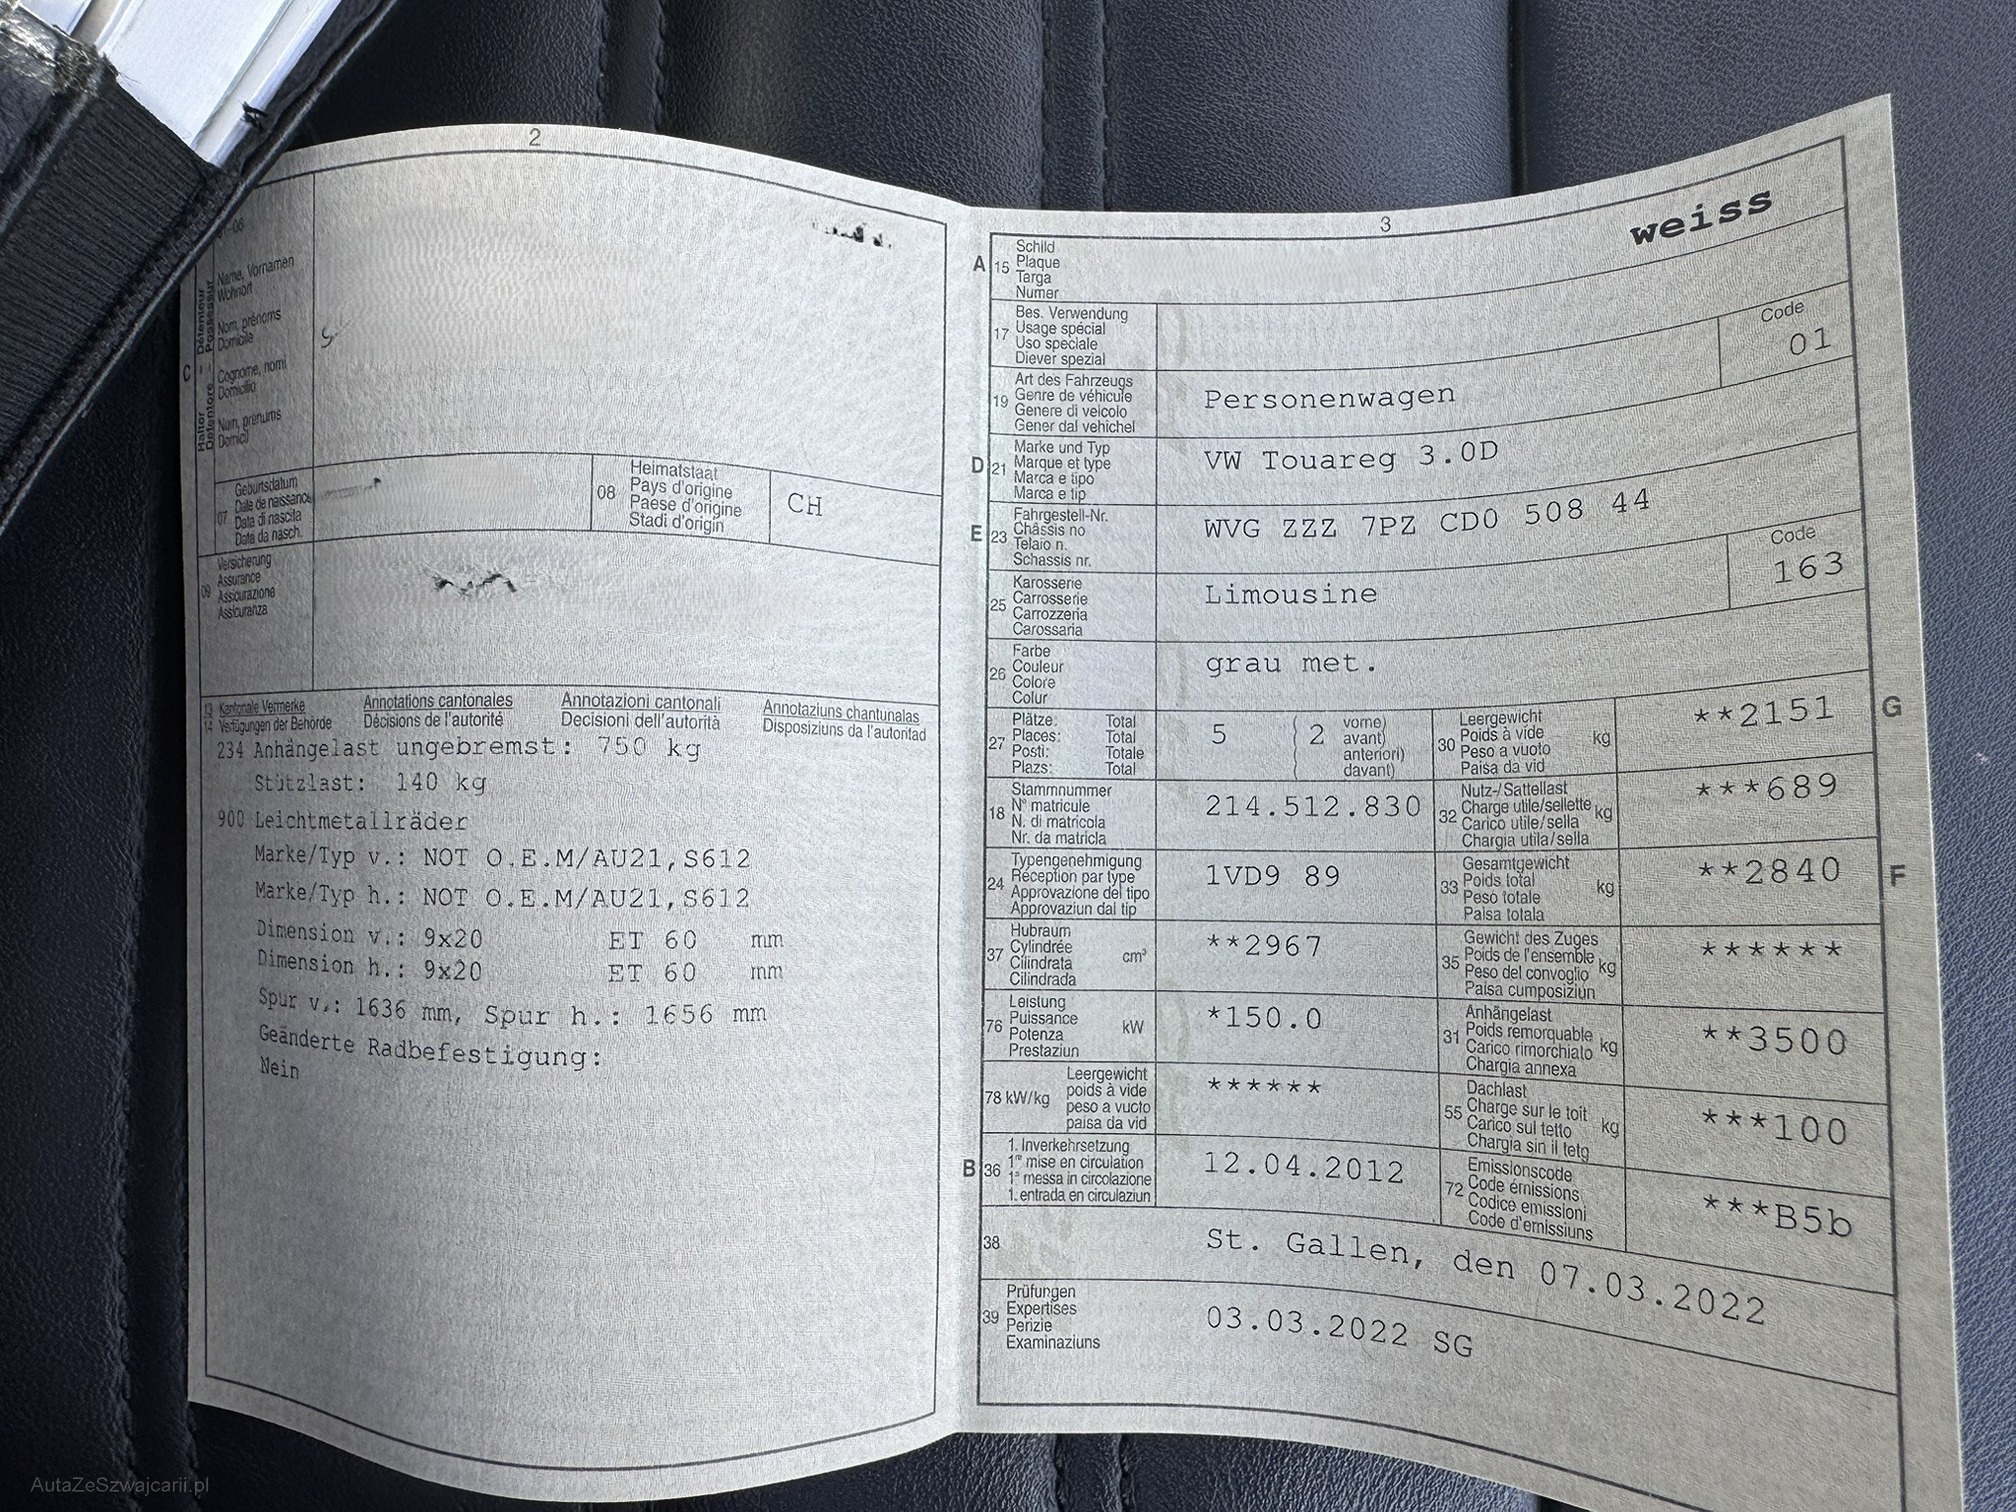 2
Name, Vornamen
Wohnort
Nom, prénoms
Domicile
Cognome, nomi
Domicilio
Num, prenums
Domicil
C
Halter – Détenteur
Detentore – Possessur
07 Geburtsdatum
Date de naissance
Data di nascita
Data da nasch.
08 Heimatstaat
Pays d'origine
Paese d'origine
Stadi d'origin
CH
09 Versicherung
Assurance
Assicurazione
Assicuranza
13 Kantonale Vermerke Annotations cantonales Annotazioni cantonali Annotaziuns chantunalas
14 Verfügungen der Behörde Décisions de l'autorité Decisioni dell'autorità Disposiziuns da l'autoritad
234 Anhängelast ungebremst: 750 kg
Stützlast: 140 kg
900 Leichtmetallräder
Marke/Typ v.: NOT O.E.M/AU21,S612
Marke/Typ h.: NOT O.E.M/AU21,S612
Dimension v.: 9x20 ET 60 mm
Dimension h.: 9x20 ET 60 mm
Spur v.: 1636 mm, Spur h.: 1656 mm
Geänderte Radbefestigung:
Nein
3
weiss
A 15 Schild
Plaque
Targa
Numer
17 Bes. Verwendung
Usage spécial
Uso speciale
Diever spezial
Code
01
19 Art des Fahrzeugs
Genre de véhicule
Genere di veicolo
Gener dal vehichel
Personenwagen
D 21 Marke und Typ
Marque et type
Marca e tipo
Marca e tip
VW Touareg 3.0D
E 23 Fahrgestell-Nr.
Châssis no
Telaio n.
Schassis nr.
WVG ZZZ 7PZ CD0 508 44
25 Karosserie
Carrosserie
Carrozzeria
Carossaria
Limousine
Code
163
26 Farbe
Couleur
Colore
Colur
grau met.
27 Plätze: Total
Places: Total
Posti: Totale
Plazs: Total
5 ( 2 vorne)
avant)
anteriori)
davant)
30 Leergewicht
Poids à vide kg
Peso a vuoto
Paisa da vid
**2151 G
18 Stammnummer
N° matricule
N. di matricola
Nr. da matricla
214.512.830
32 Nutz-/Sattellast
Charge utile/sellette kg
Carico utile/sella
Chargia utila/sella
***689
24 Typengenehmigung
Réception par type
Approvazione del tipo
Approvaziun dal tip
1VD9 89
33 Gesamtgewicht
Poids total kg
Peso totale
Paisa totala
**2840 F
37 Hubraum
Cylindrée cm³
Cilindrata
Cilindrada
**2967
35 Gewicht des Zuges
Poids de l'ensemble kg
Peso del convoglio
Paisa cumposiziun
******
76 Leistung
Puissance kW
Potenza
Prestaziun
*150.0
31 Anhängelast
Poids remorquable kg
Carico rimorchiato
Chargia annexa
**3500
78 kW/kg Leergewicht
poids à vide
peso a vuoto
paisa da vid
******
55 Dachlast
Charge sur le toit kg
Carico sul tetto
Chargia sin il tetg
***100
B 36 1. Inverkehrsetzung
1re mise en circulation
1a messa in circolazione
1. entrada en circulaziun
12.04.2012
72 Emissionscode
Code émissions
Codice emissioni
Code d'emissiuns
***B5b
38 St. Gallen, den 07.03.2022
39 Prüfungen
Expertises
Perizie
Examinaziuns
03.03.2022 SG
AutaZeSzwajcarii.pl